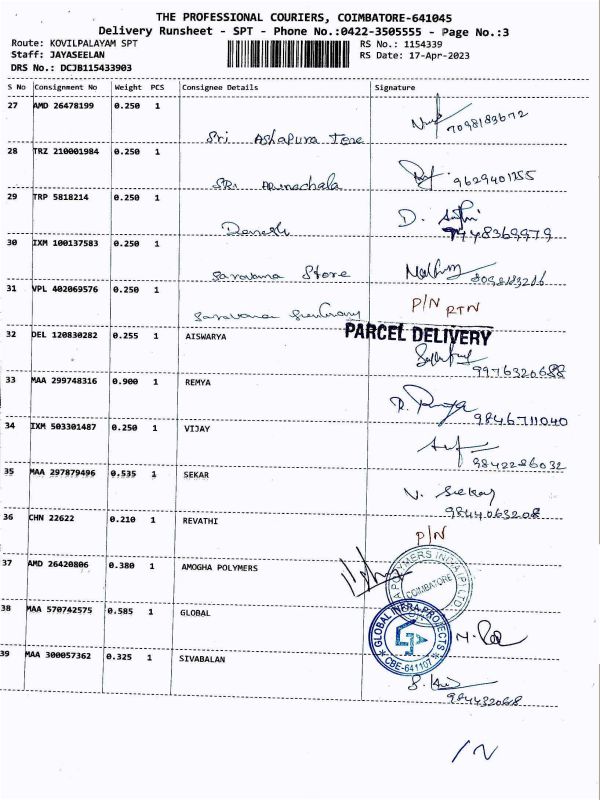 THE PROFESSIONAL COURIERS, COIMBATORE-641045
Delivery Runsheet - SPT - Phone No.:0422-3505555 - Page No.:3
Route: KOVILPALAYAM SPT
Staff: JAYASEELAN
DRS No.: DCJB115433903
RS No.: 1154339
RS Date: 17-Apr-2023
S No Consignment No Weight PCS Consignee Details Signature
27 AMD 26478199 0.250 1
7098183672
Sri Ashapura Tore
28 TRZ 210001984 0.250 1
9629401355
SRi Arunachala
29 TRP 5818214 0.250 1
D.
7448369979
30 IXM 100137583 0.250 1
Saravana Store
31 VPL 402069576 0.250 1 P/N RTN
Saravana
PARCEL DELIVERY
32 DEL 120830282 0.255 1 AISWARYA
9976320688
33 MAA 299748316 0.900 1 REMYA
9846711040
34 IXM 503301487 0.250 1 VIJAY
9842286032
35 MAA 297879496 0.535 1 SEKAR V. Sekar
9844063208
36 CHN 22622 0.210 1 REVATHI
P/N
37 AMD 26420806 0.380 1 AMOGHA POLYMERS
POLYMERS INDIA (P) LTD
COIMBATORE
38 MAA 570742575 0.585 1 GLOBAL
GLOBAL INFRA PROJECTS
CBE-641107
39 MAA 300057362 0.325 1 SIVABALAN
984432068